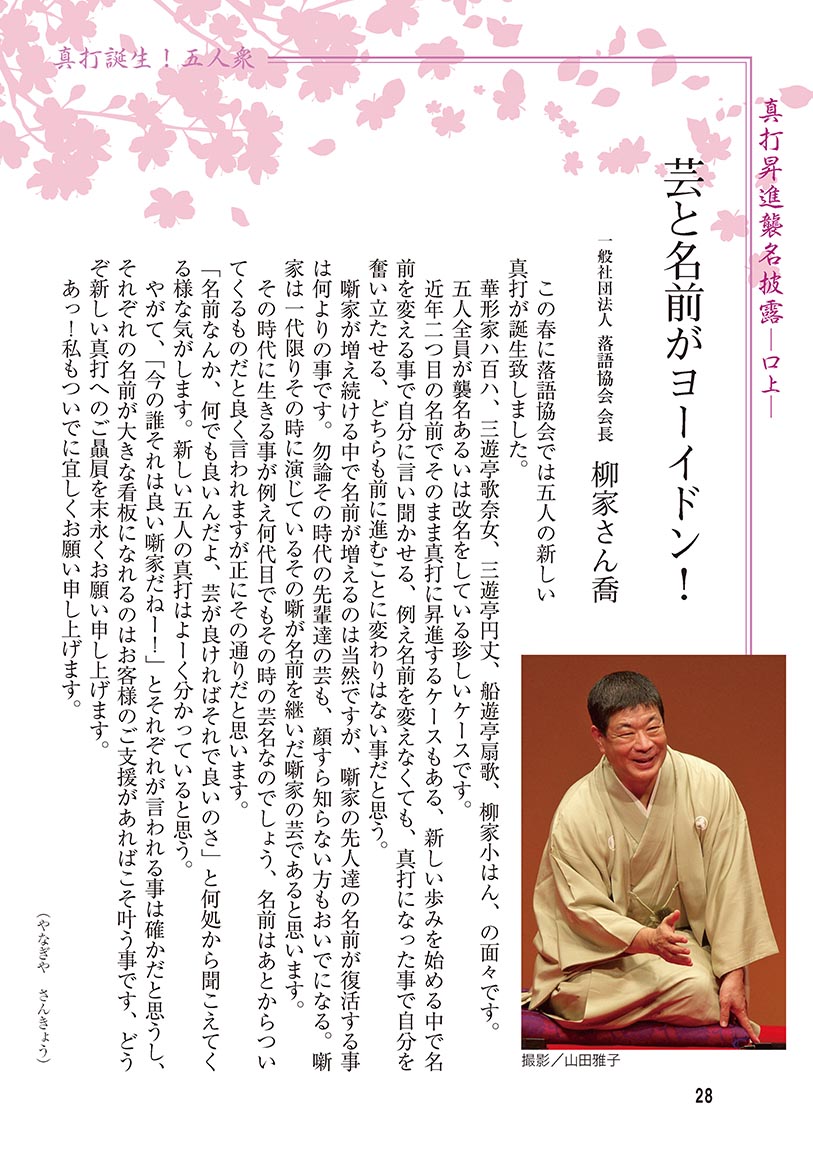 真打誕生！五人衆
真打昇進襲名披露―口上―
芸と名前がヨーイドン！
一般社団法人 落語協会 会長 柳家さん喬
この春に落語協会では五人の新しい
真打が誕生致しました。
華形家八百八、三遊亭歌奈女、三遊亭円丈、船遊亭扇歌、柳家小はん、の面々です。
五人全員が襲名あるいは改名をしている珍しいケースです。
近年二つ目の名前でそのまま真打に昇進するケースもある、新しい歩みを始める中で名
前を変える事で自分に言い聞かせる、例え名前を変えなくても、真打になった事で自分を
奮い立たせる、どちらも前に進むことに変わりはない事だと思う。
噺家が増え続ける中で名前が増えるのは当然ですが、噺家の先人達の名前が復活する事
は何よりの事です。勿論その時代の先輩達の芸も、顔すら知らない方もおいでになる。噺
家は一代限りその時に演じているその噺が名前を継いだ噺家の芸であると思います。
その時代に生きる事が例え何代目でもその時の芸名なのでしょう、名前はあとからつい
てくるものだと良く言われますが正にその通りだと思います。
「名前なんか、何でも良いんだよ、芸が良ければそれで良いのさ」と何処から聞こえてく
る様な気がします。新しい五人の真打はよーく分かっていると思う。
やがて、「今の誰それは良い噺家だねー！」とそれぞれが言われる事は確かだと思うし、
それぞれの名前が大きな看板になれるのはお客様のご支援があればこそ叶う事です、どう
ぞ新しい真打へのご贔屓を末永くお願い申し上げます。
あっ！私もついでに宜しくお願い申し上げます。
（やなぎや さんきょう）
撮影／山田雅子
28